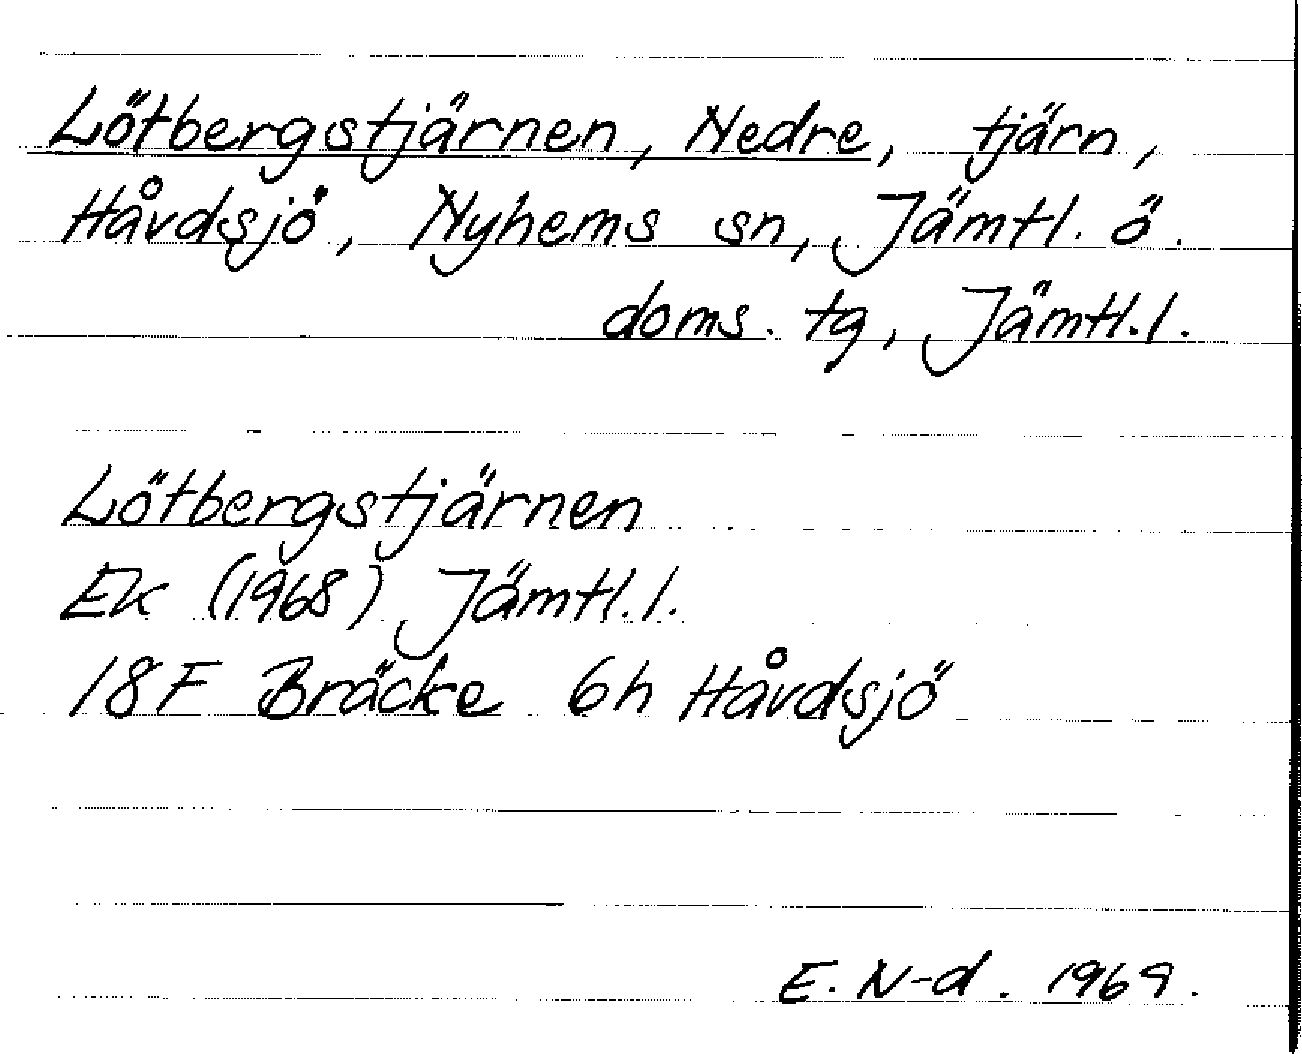 Lötbergstjärnen, Nedre, tjärn,
Håvdsjö, Nyhems sn, Jämtl. ö.
doms. tg, Jämtl. l.
Lötbergstjärnen
Ek (1968) Jämtl. l.
18F Bräcke 6h Håvdsjö
E. N-d. 1969.